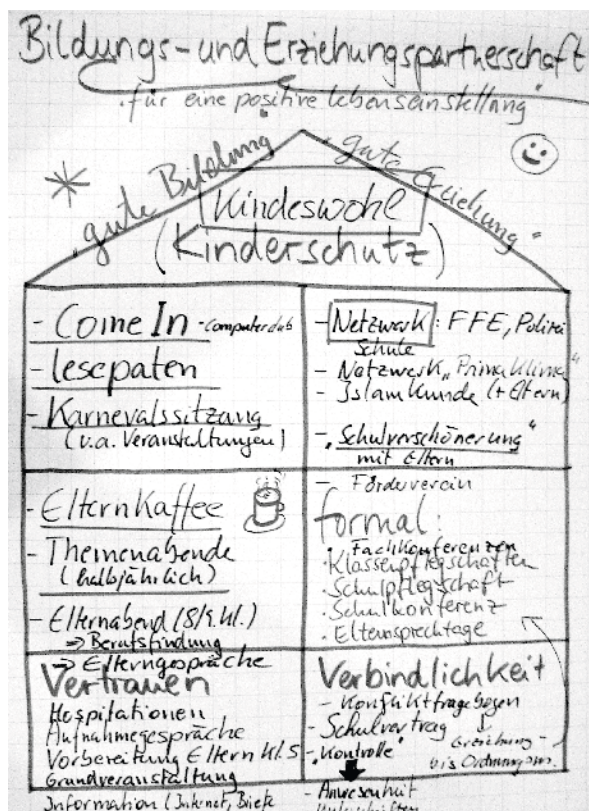 Bildungs- und Erziehungspartnerschaft
"für eine positive Lebenseinstellung"
"gute Bildung"
"gute Erziehung"
Kindeswohl
(Kinderschutz)
- Come In - Computerclub
- Lesepaten
- Karnevalssitzung
(u.a. Veranstaltungen)
- Netzwerk: FFE, Polizei
Schule
- Netzwerk "Prima Klima"
- Islamkunde (+ Eltern)
- "Schulverschönerung"
mit Eltern
- Förderverein
- Elternkaffee
- Themenabende
(halbjährlich)
- Elternabend (8/9. Kl.)
⇒ Berufsfindung
⇒ Elterngespräche
formal:
· Fachkonferenzen
· Klassenpflegschaften
· Schulpflegschaft
· Schulkonferenz
· Elternsprechtage
Vertrauen
Hospitationen
Aufnahmegespräche
Vorbereitung Eltern Kl. 5
Grundveranstaltung
Information (Internet, Briefe
Verbindlichkeit
- Konfliktfragebogen
- Schulvertrag
- "Kontrolle"
Erziehung-
bis Ordnungsm.
- Anwesenheit